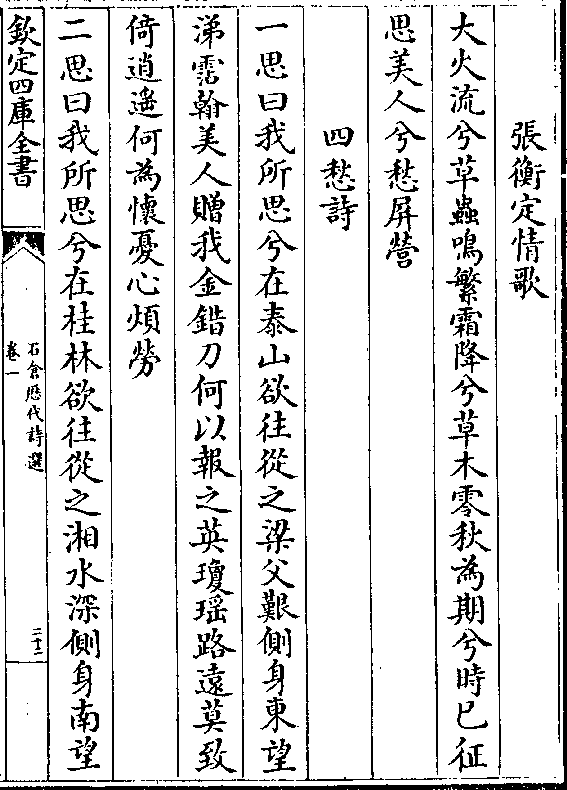 張衡定情歌
大火流兮草蟲鳴繁霜降兮草木零秋為期兮時已征
思美人兮愁屏營
四愁詩
一思曰我所思兮在泰山欲往從之梁父艱側身東望
涕霑翰美人贈我金錯刀何以報之英瓊瑶路遠莫致
倚逍遥何為懷憂心煩勞
二思曰我所思兮在桂林欲往從之湘水深側身南望
欽定四庫全書
石倉歷代詩選
卷一
二十二